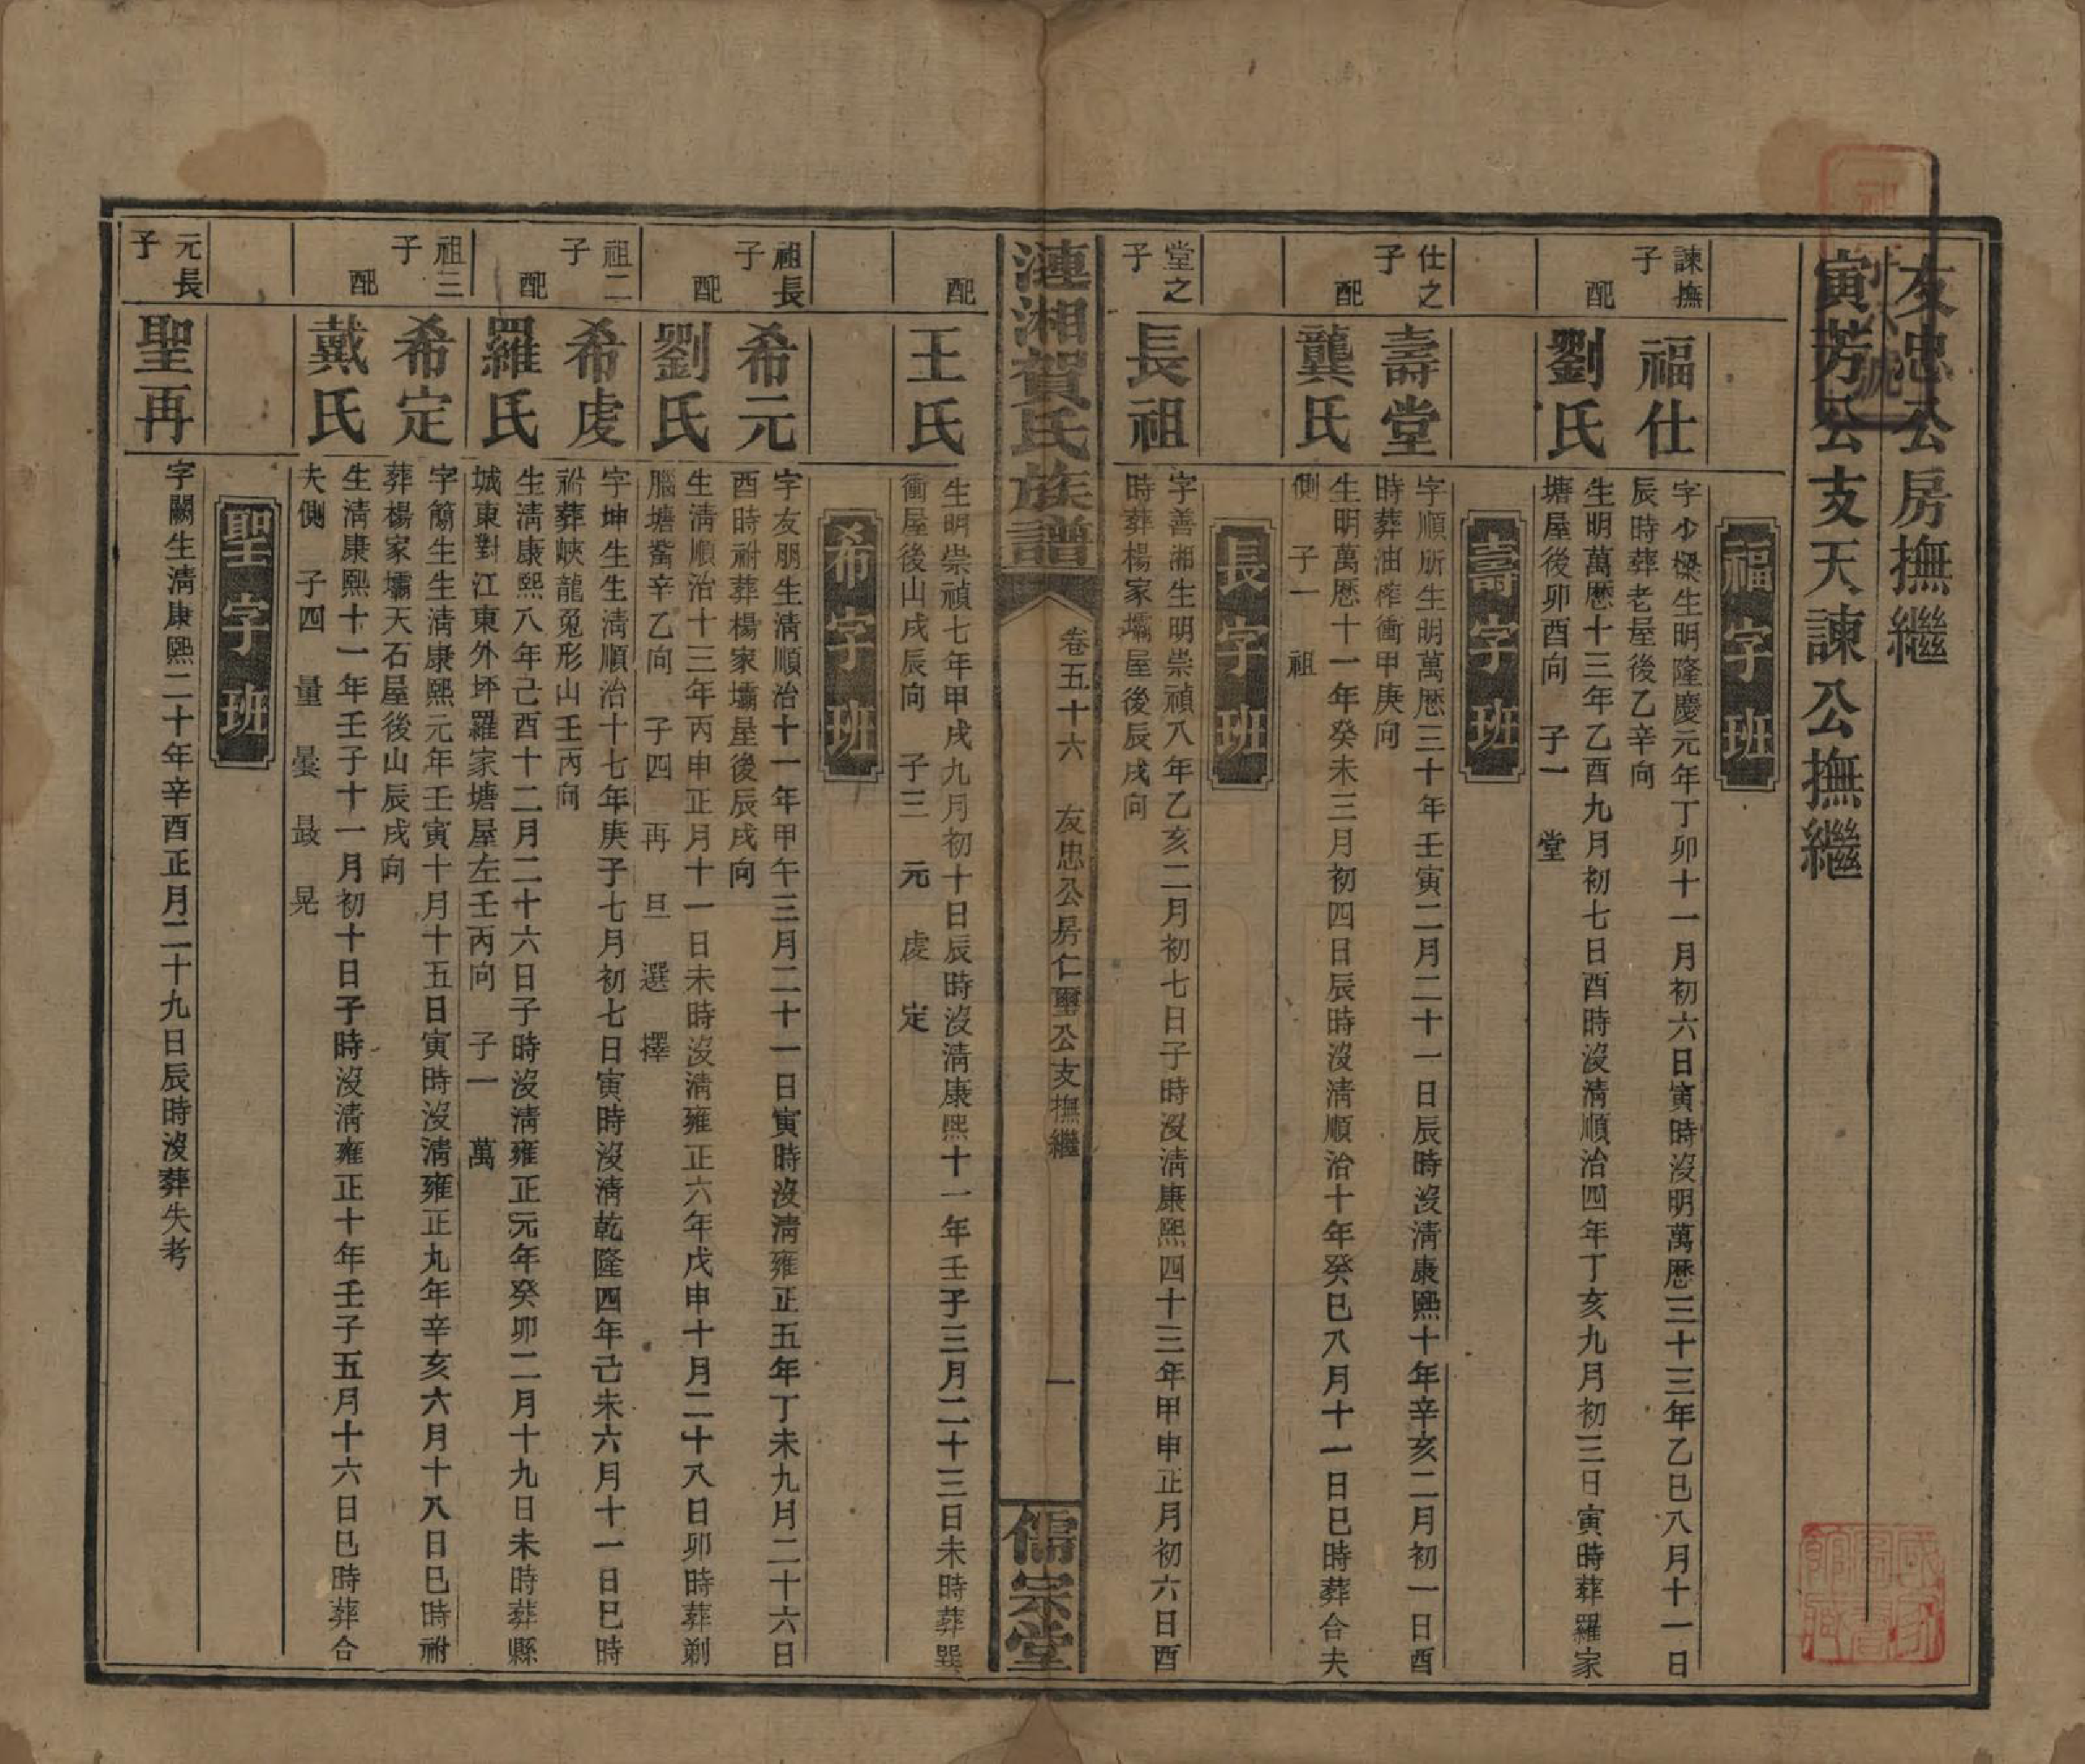 友忠公房撫繼
寅芳公支天諫公撫繼
福字班
諫撫子
福仕
字少樑生明隆慶元年丁卯十一月初六日寅時沒明萬歷三十三年乙巳八月十一日
辰時葬老屋後乙辛向
配
劉氏
生明萬歷十三年乙酉九月初七日酉時沒清順治四年丁亥九月初三日寅時葬羅家
塘屋後卯酉向 子一 堂
壽字班
仕之子
壽堂
字順所生明萬歷三十年壬寅二月二十一日辰時沒清康熙十年辛亥二月初一日酉
時葬油榨衝甲庚向
配
龔氏
生明萬歷十一年癸未三月初四日辰時沒清順治十年癸巳八月十一日巳時葬合夫
側 子一 祖
長字班
堂之子
長祖
字善湘生明崇禎八年乙亥二月初七日子時沒清康熙四十三年甲申正月初六日酉
時葬楊家壩屋後辰戌向
漣湘賀氏族譜
卷五十六 友忠公房仁璽公支撫繼
一
儒宗堂
配
王氏
生明崇禎七年甲戌九月初十日辰時沒清康熙十一年壬子三月二十三日未時葬巽
衝屋後山戌辰向 子三 元 虔 定
希字班
祖長子
希元
字友朋生清順治十一年甲午三月二十一日寅時沒清雍正五年丁未九月二十六日
酉時祔葬楊家壩屋後辰戌向
配
劉氏
生清順治十三年丙申正月十一日未時沒清雍正六年戊申十月二十八日卯時葬剃
腦塘觜辛乙向 子四 再 旦 選 擇
祖二子
希虔
字坤生生清順治十七年庚子七月初七日寅時沒清乾隆四年己未六月十一日巳時
祔葬峽龍兔形山壬丙向
配
羅氏
生清康熙八年己酉十二月二十六日子時沒清雍正元年癸卯二月十九日未時葬縣
城東對江東外坪羅家塘屋左壬丙向 子一 萬
祖三子
希定
字簡生生清康熙元年壬寅十月十五日寅時沒清雍正九年辛亥六月十八日巳時祔
葬楊家壩天石屋後山辰戌向
配
戴氏
生清康熙十一年壬子十一月初十日子時沒清雍正十年壬子五月十六日巳時葬合
夫側 子四 量 曇 晸 晃
聖字班
元長子
聖再
字闕生清康熙二十年辛酉正月二十九日辰時沒葬失考